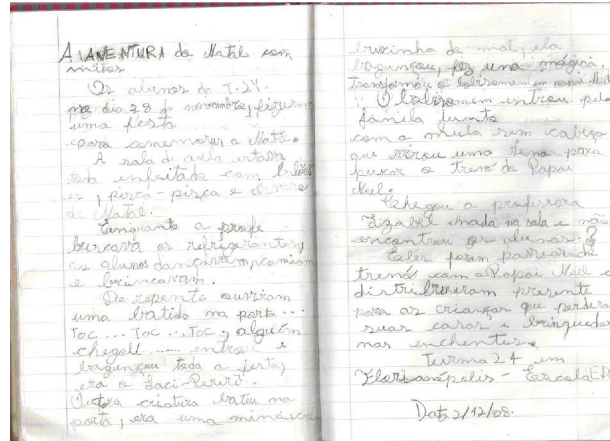 A AVENTURA do Natal com
mitos
Os alunos da T.24.
no dia 28 de novembro, fizeram
uma festa
para comemorar o Natal.
A sala de aula estava
toda enfeitada com balões
es, pisca-pisca e árvores
de Natal.
Emquanto a profe
buscava os refrigerantes,
os alunos dançavam, comiam
e brincavam.
De repente ouviram
uma batida na porta...
Toc... Toc... Toc, alguém
chegou ... entrou e
bagunçou toda a festa,
era o Saci-Pererê.
Outra criatura bateu na
porta, era uma minúscula
bruxinha do mal, ela
bagunçou, fez uma mágica,
transformou o lobisomem em papai Noel.
O lobisomem entrou pela
janela junto
com a mula sem cabeça
que virou uma rena para
puxar o trenó do Papai
Noel.
Chegou a professora
Izabel na sala e não
encontrou os alunos?
Eles foram passear de
trenós com o Papai Noel e
distribuiram presente
para as crianças que perdera
suas casas e brinquedos
nas enchentes.
Turma 24 em
Florianópolis - Escola EDP
Data 2/12/08.